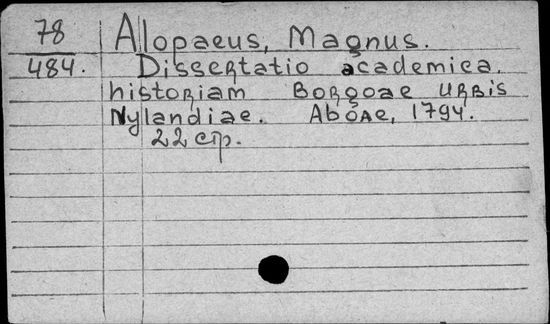 78
484.
Allopaeus, Magnus.
Dissertatio academica.
historiam Borgoae urbis
Nylandiae. Aboae, 1794.
22 стр.